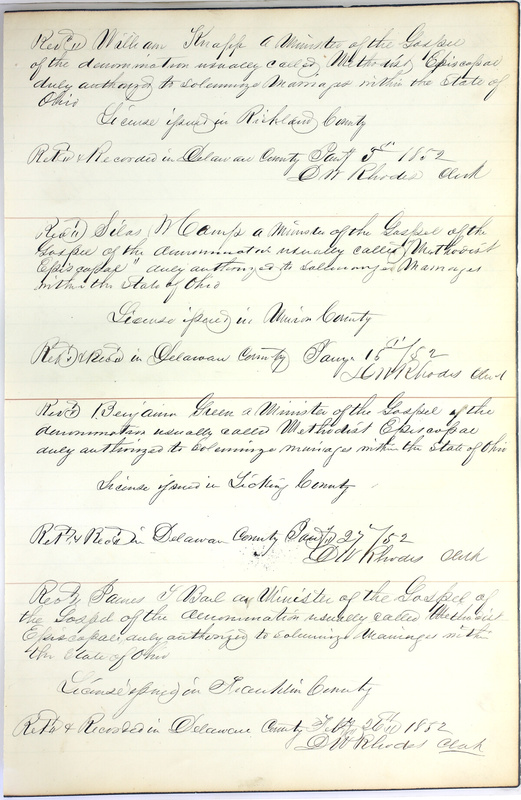 Revd William Knapp a Minister of the Gospel
of the denomination usually called "Methodist Episcopal
duly authorized to solemnize Marriages within the State of
Ohio
License issued in Richland County
Retd & Recorded in Delaware County Jany 5th 1852
D W Rhodes Clerk
Revd Silas W Camp a Minister of the Gospel of the
Gospel of the denomination usually called "Methodist
Episcopal" duly authorized to solemnize Marriages
within the State of Ohio
License issued in Union County
Retd & Recd in Delaware County Jany 15th /52
D W Rhodes Clerk
Revd Benjamin Green a Minister of the Gospel of the
denomination usually called Methodist Episcopal
duly authorized to solemnize marriages within the State of Ohio
License issued in Licking County
Retd & Recd in Delaware County Jany 27 /52
D W Rhodes Clerk
Revd James T a Minister of the Gospel of
the Gospel of the denomination usually called Methodist
Episcopal duly authorized to solemnize Marriages within
the State of Ohio
License issued in Franklin County
Retd & Recorded in Delaware County Feby 26th 1852
D W Rhodes Clerk